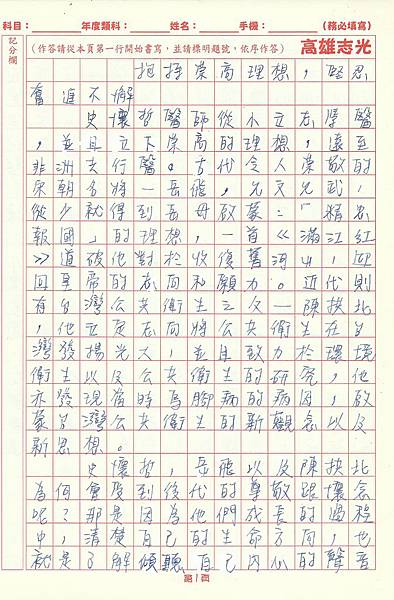 科目：　年度類科：　姓名：　手機：　(務必填寫)
記分欄
(作答請從本頁第一行開始書寫，並請標明題號，依序作答)
高雄志光
抱持崇高理想，堅忍
奮進不懈
史懷哲醫師從小立志學醫
，並且立下崇高的理想，遠至
非洲去行醫。古代令人崇敬的
宋朝名將—岳飛，允文允武，
從少就得到岳母啟蒙：「精忠
報國」的理想，一首《滿江紅
》道破他對於收復舊河山，迎
回皇帝的志向和願力。近代則
有台灣公共衛生之父—陳拱北
，他立定志向將公共衛生在台
灣發揚光大，並且致力於環境
衛生以及公共衛生的研究，他
亦發現當時烏腳病的病因，啟
蒙台灣公共衛生的新觀念以及
新思想。
史懷哲，岳飛以及陳拱北
為何會受到後代的尊敬跟懷念
呢？那是因為他們成長的過程
中，清楚自己的生命方向，也
就是了解傾聽自己內心的聲音
第1頁